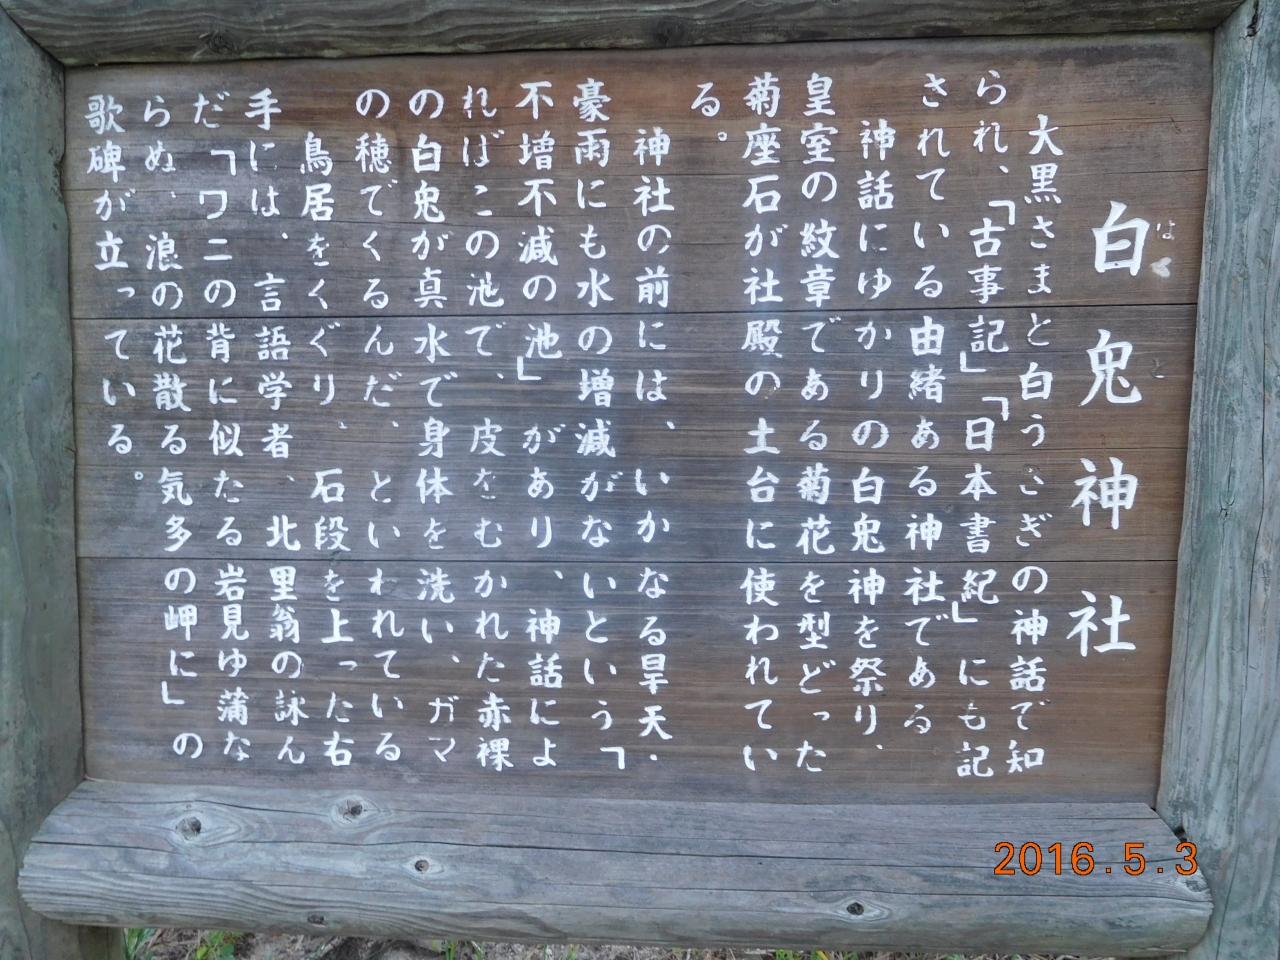 白兎神社
はくと
大黒さまと白うさぎの神話で知
られ、「古事記」「日本書紀」にも記
されている由緒ある神社である
神話にゆかりの白兎神を祭り、
皇室の紋章である菊花を型どった
菊座石が社殿の土台に使われてい
る。
神社の前には、いかなる旱天・
豪雨にも水の増減がないという「
不増不減の池」があり、神話によ
ればこの池で、皮をむかれた赤裸
の白兎が真水で身体を洗い、ガマ
の穂でくるんだ、といわれている
鳥居をくぐり、石段を上った右
手には、言語学者、北里翁の詠ん
だ「ワニの背に似たる岩見ゆ蒲な
らぬ、浪の花散る気多の岬に」の
歌碑が立っている。
2016.5.3